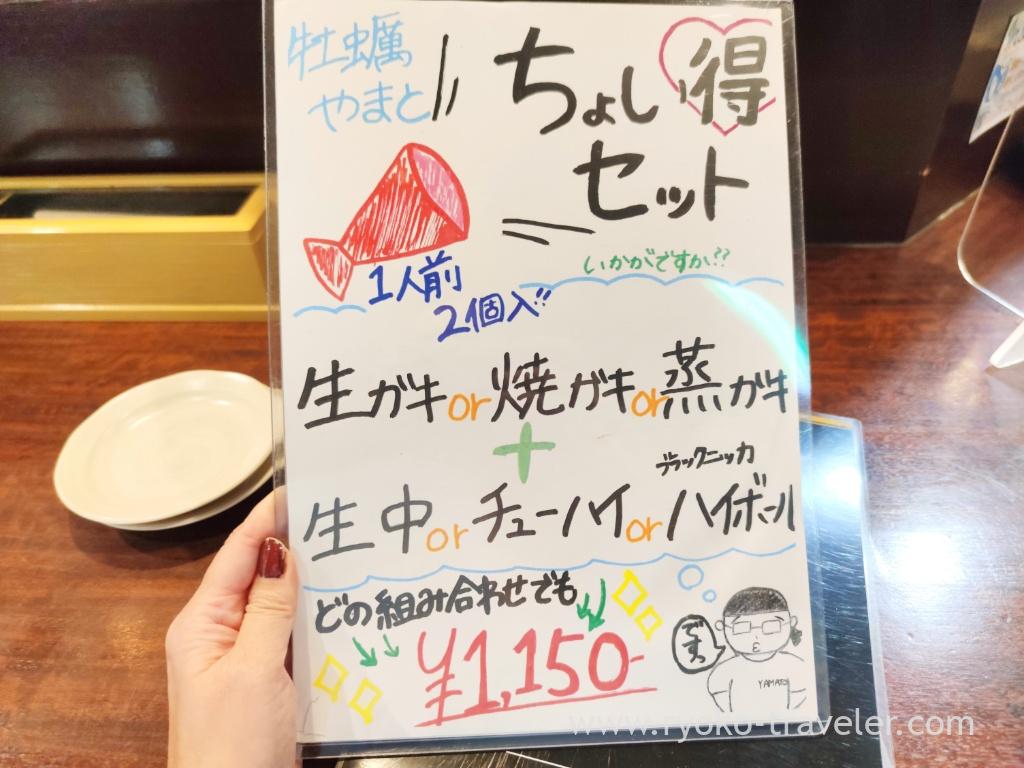 牡蠣
やまと
ちょい得
セット
いかがですか??
1人前
2個入!!
生ガキor焼ガキor蒸ガキ
+
ブラックニッカ
生中orチューハイorハイボール
どの組み合わせでも
¥1,150-
です。
YAMATO
www.ryoko-traveler.com